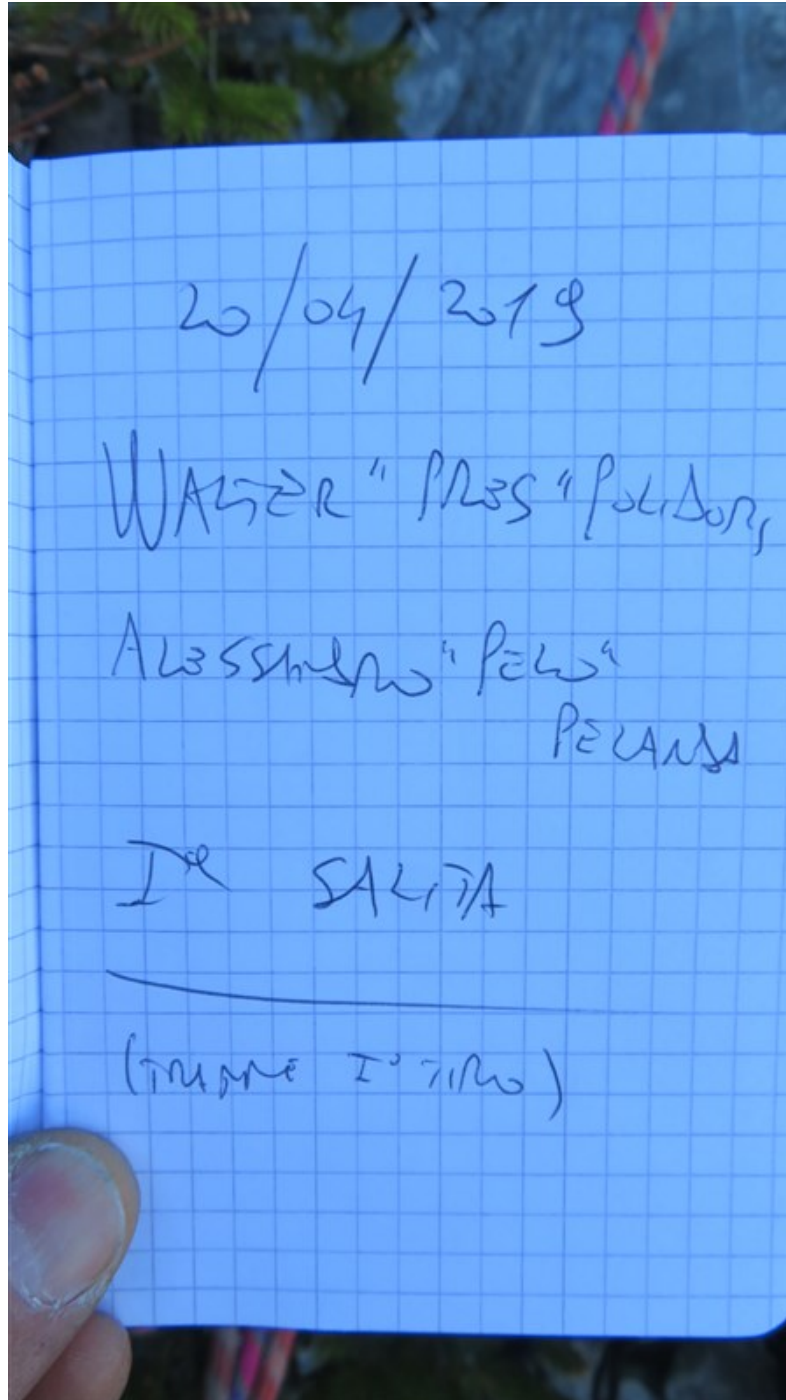 20/04/2019
WALTER "PRES" POLIDORI
ALESSANDRO "PELO"
PELANDA
Iª SALITA
(TRANNE I° TIRO)